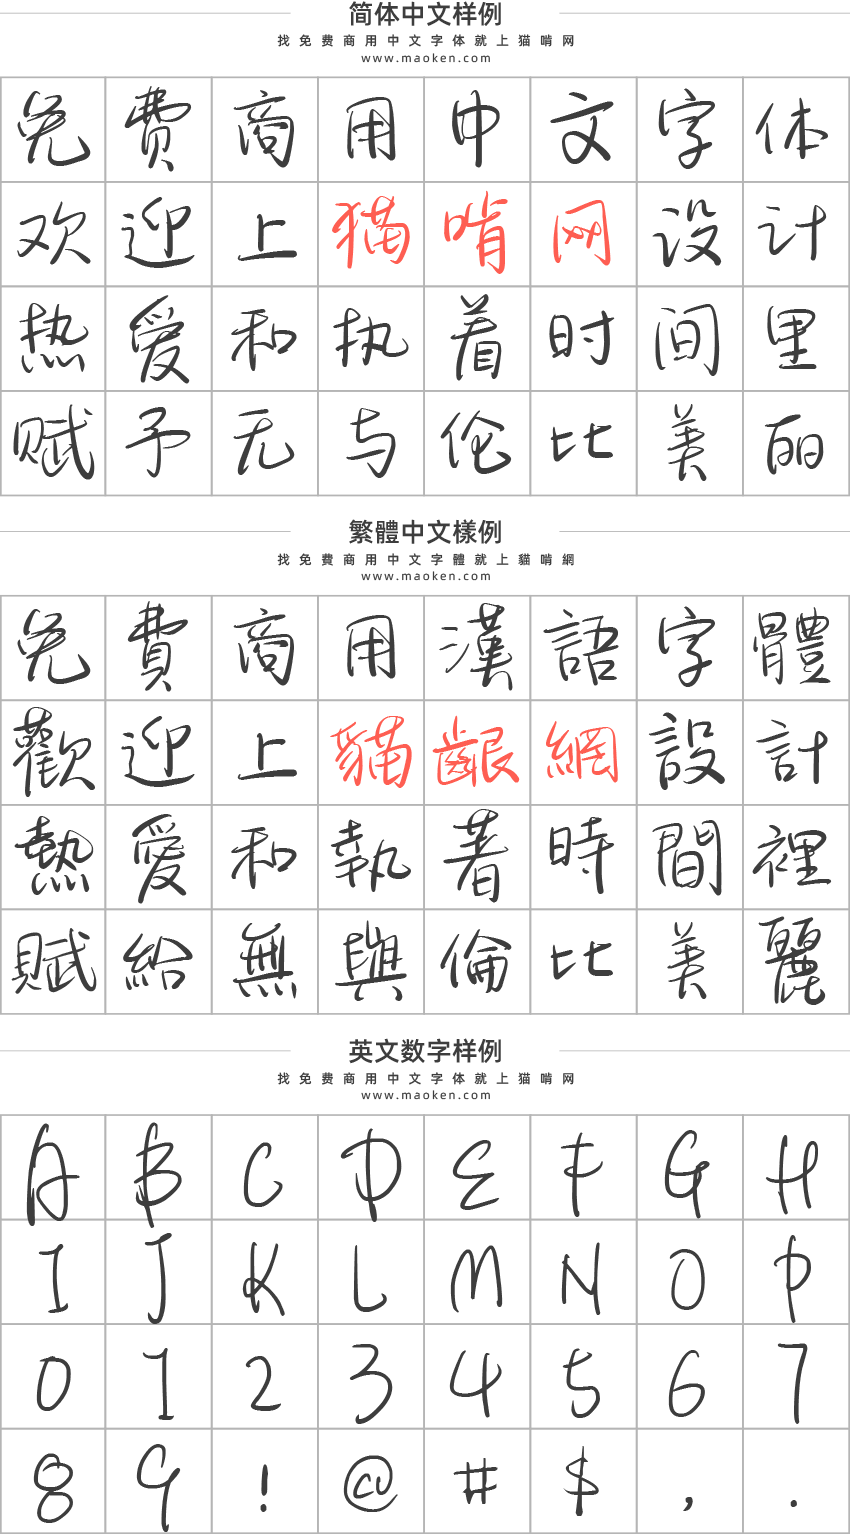 简体中文样例
找免费商用中文字体就上猫啃网
www.maoken.com
免費商用中文字体
欢迎上猫啃网设计
热愛和执着时间里
赋予无与伦比美丽
繁體中文樣例
找免費商用中文字體就上貓啃網
www.maoken.com
免費商用漢語字體
歡迎上貓齦網設計
熱愛和執著時間裡
賦給無與倫比美麗
英文数字样例
找免费商用中文字体就上猫啃网
www.maoken.com
ABCDEFGH
IJKLMNOP
01234567
89!@#$,.